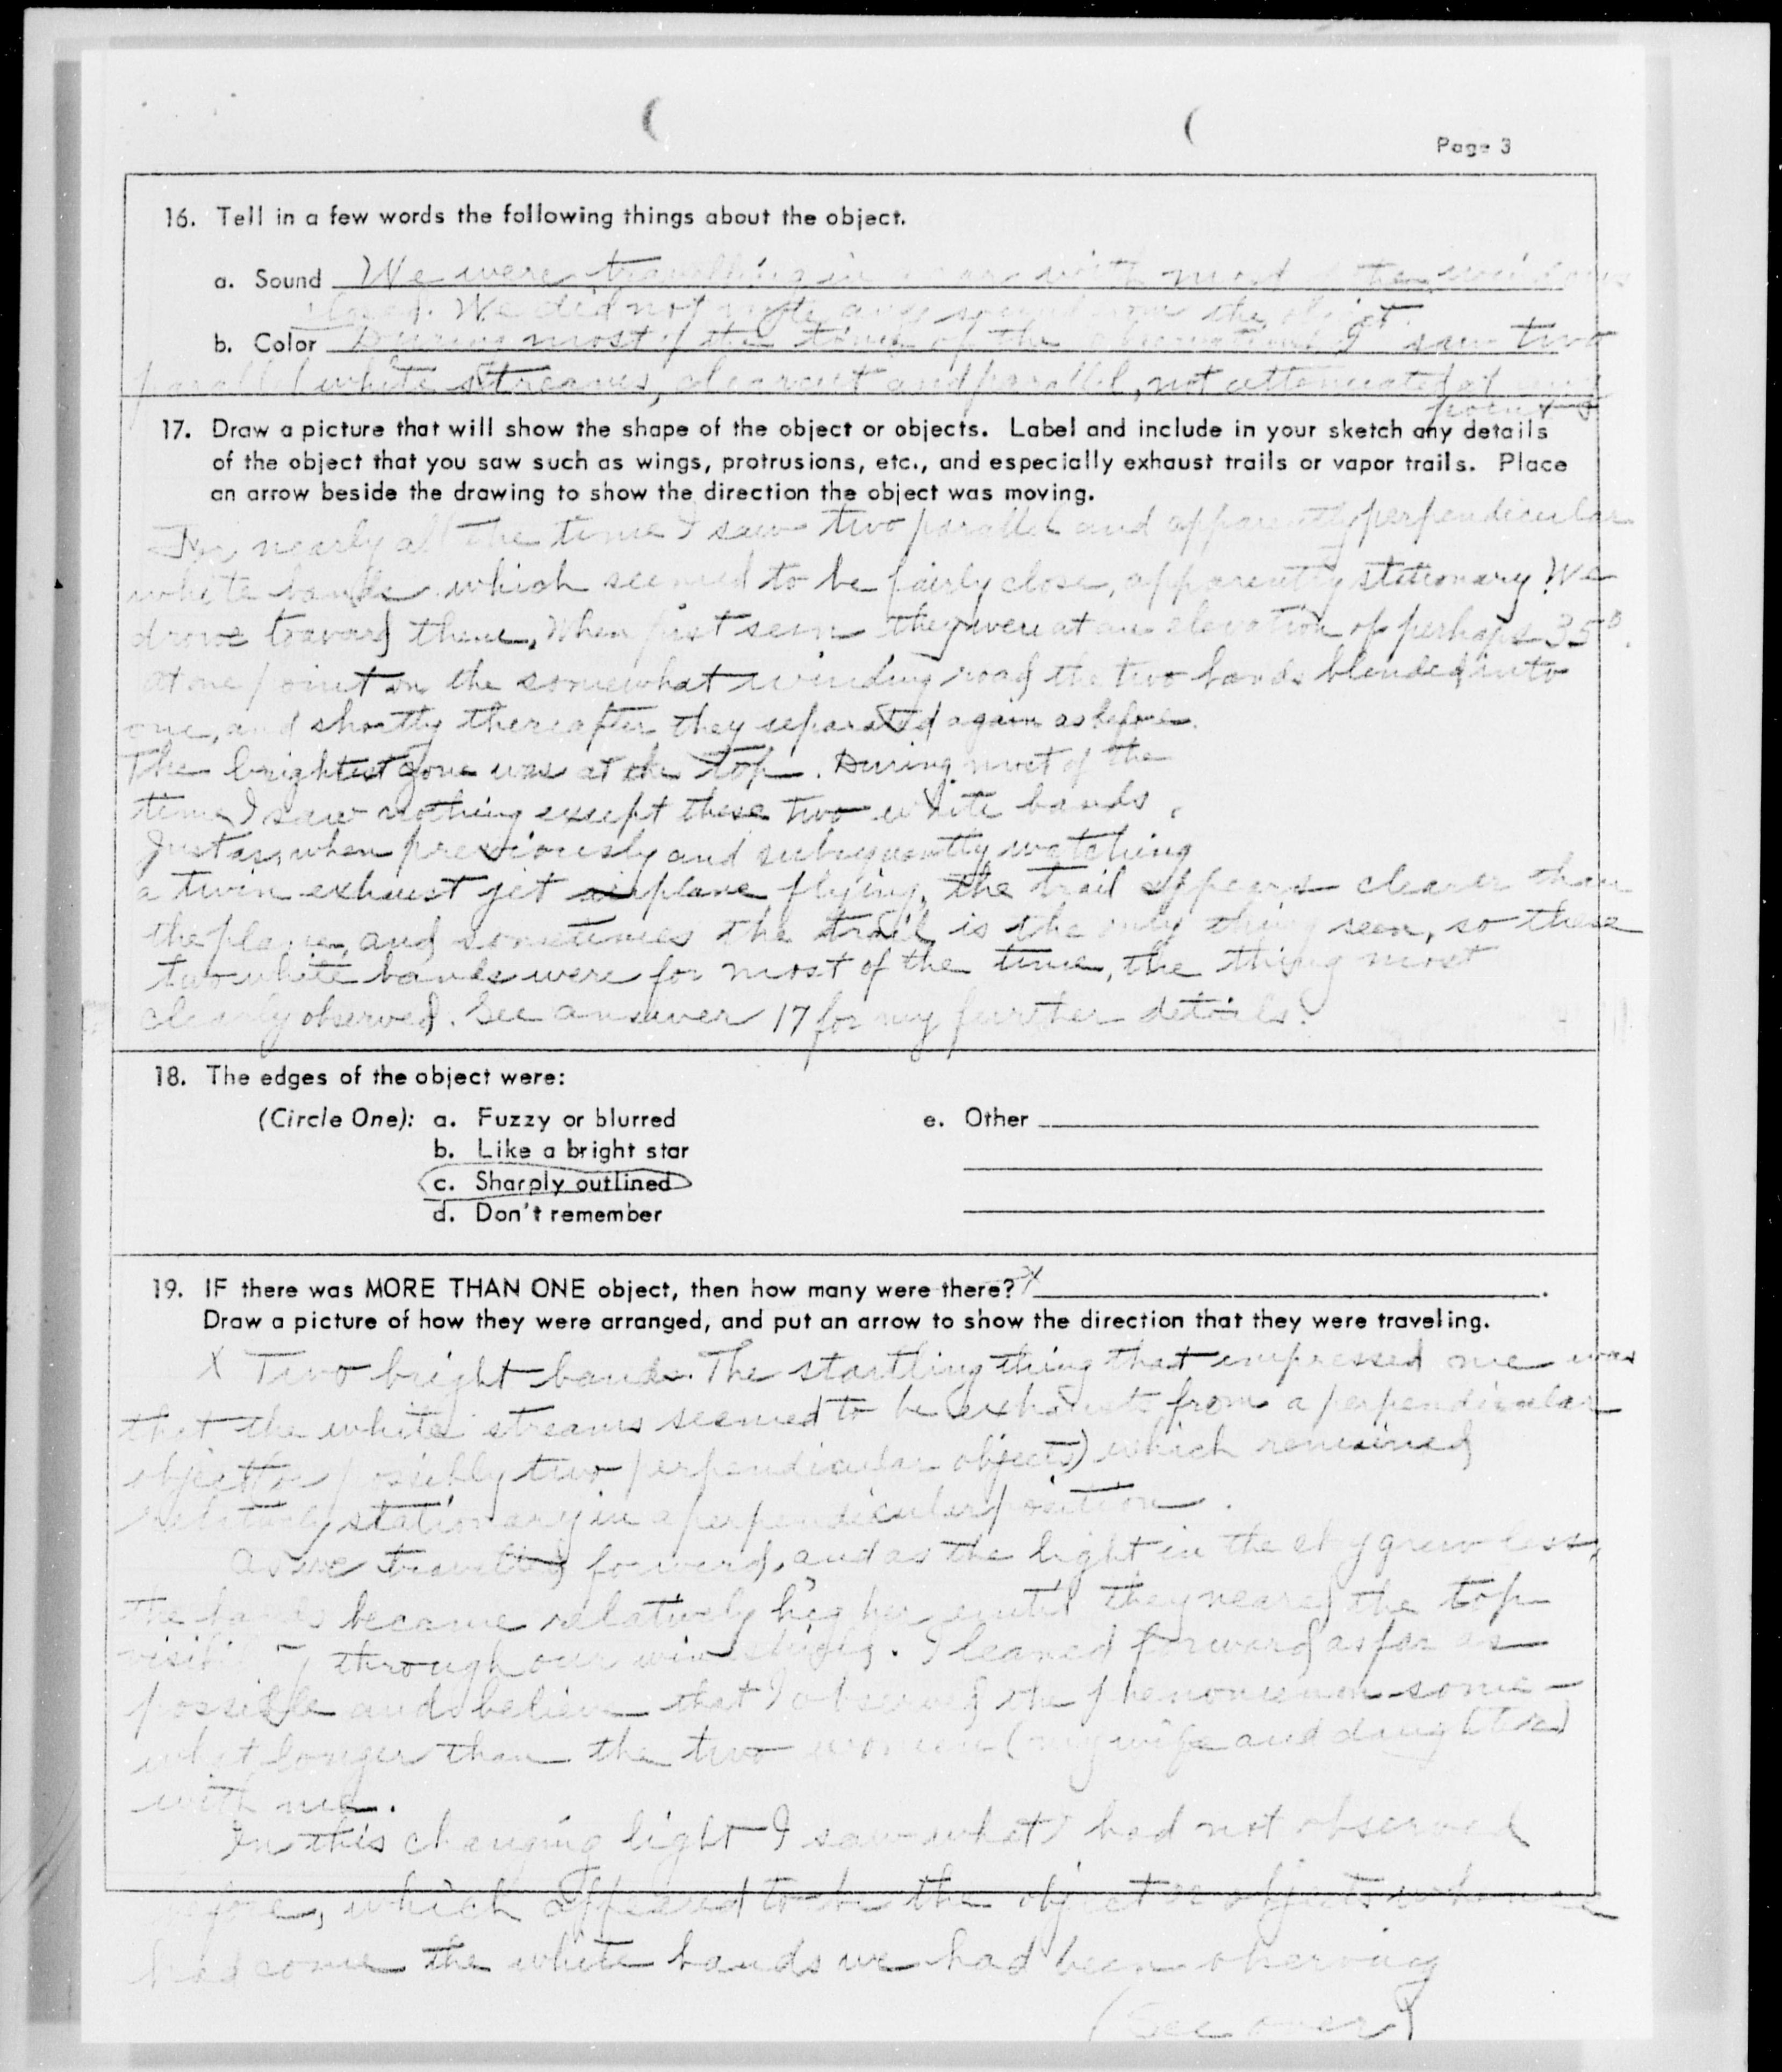 Page 3
16. Tell in a few words the following things about the object.
a. Sound We were travelling in a car with most of the windows
closed. We did not note any sound from the object.
b. Color During most of the time of the observation I saw two
parallel white streams, clearcut and parallel, not attenuated at any
points
17. Draw a picture that will show the shape of the object or objects. Label and include in your sketch any details
of the object that you saw such as wings, protrusions, etc., and especially exhaust trails or vapor trails. Place
an arrow beside the drawing to show the direction the object was moving.
For nearly all the time I saw two parallel and apparently perpendicular
white bands which seemed to be fairly close, apparently stationary. We
drove toward them. When first seen they were at an elevation of perhaps 35°.
at one point on the somewhat winding road the two bands blended into
one, and shortly thereafter they separated again as before.
The brightest zone was at the top. During most of the
time I saw nothing except these two white bands.
Just as, when previously and subsequently watching
a twin exhaust jet airplane flying, the trail appears clearer than
the plane, and sometimes the trail is the only thing seen, so these
two white bands were for most of the time, the thing most
clearly observed. See answer 17 for my further details.
18. The edges of the object were:
(Circle One): a. Fuzzy or blurred
b. Like a bright star
c. Sharply outlined
d. Don't remember
e. Other
19. IF there was MORE THAN ONE object, then how many were there? X
Draw a picture of how they were arranged, and put an arrow to show the direction that they were traveling.
X Two bright bands. The startling thing that impressed me was
that the white streams seemed to be exhausts from a perpendicular
object (or possibly two perpendicular objects) which remained
relatively stationary in a perpendicular position.
As we travelled forward, and as the light in the sky grew less,
the bands became relatively higher until they neared the top
visibility through our windshield. I leaned forward as far as
possible and believe that I observed the phenomenon some-
what longer than the two women (my wife and daughter)
with me.
In this changing light I saw what I had not observed
before, which appeared to be the object or objects whence
had come the white bands we had been observing
(See over)